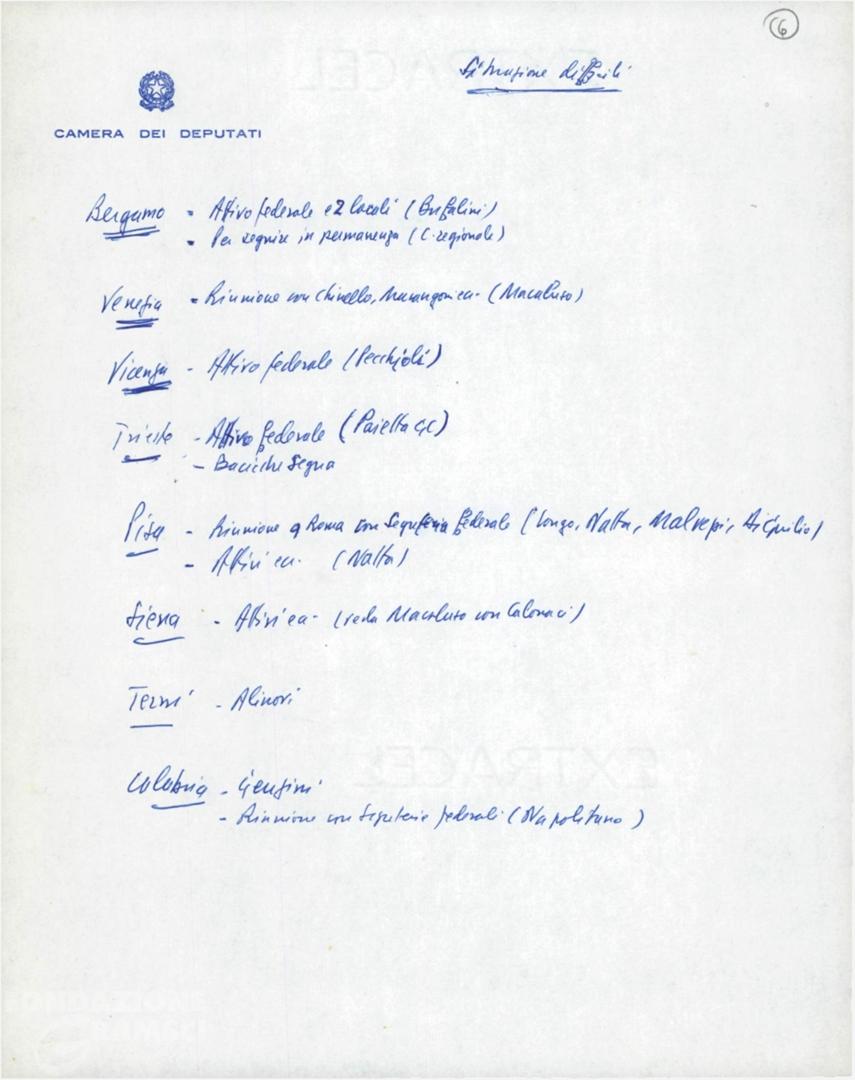 6
Situazione difficili
CAMERA DEI DEPUTATI
Bergamo - Attivo federale e 2 locali (Bufalini)
- Per seguire in permanenza (C. regionale)
Venezia - Riunione con Chinello, Marangoni ecc. (Macaluso)
Vicenza - Attivo federale (Pecchioli)
Trieste - Attivo federale (Paietta GC)
- Bacicchi segua
Pisa - Riunione a Roma con Segreteria federale (Longo, Natta, Malvezzi, Di Giulio)
- Attivi ecc. (Natta)
Siena - Attivi ecc. (veda Macaluso con Calonaci)
Terni - Alinovi
Calabria - Gensini
- Riunione con Segreterie federali (Napolitano)
EXTRACEL
FONDAZIONE
GRAMSCI